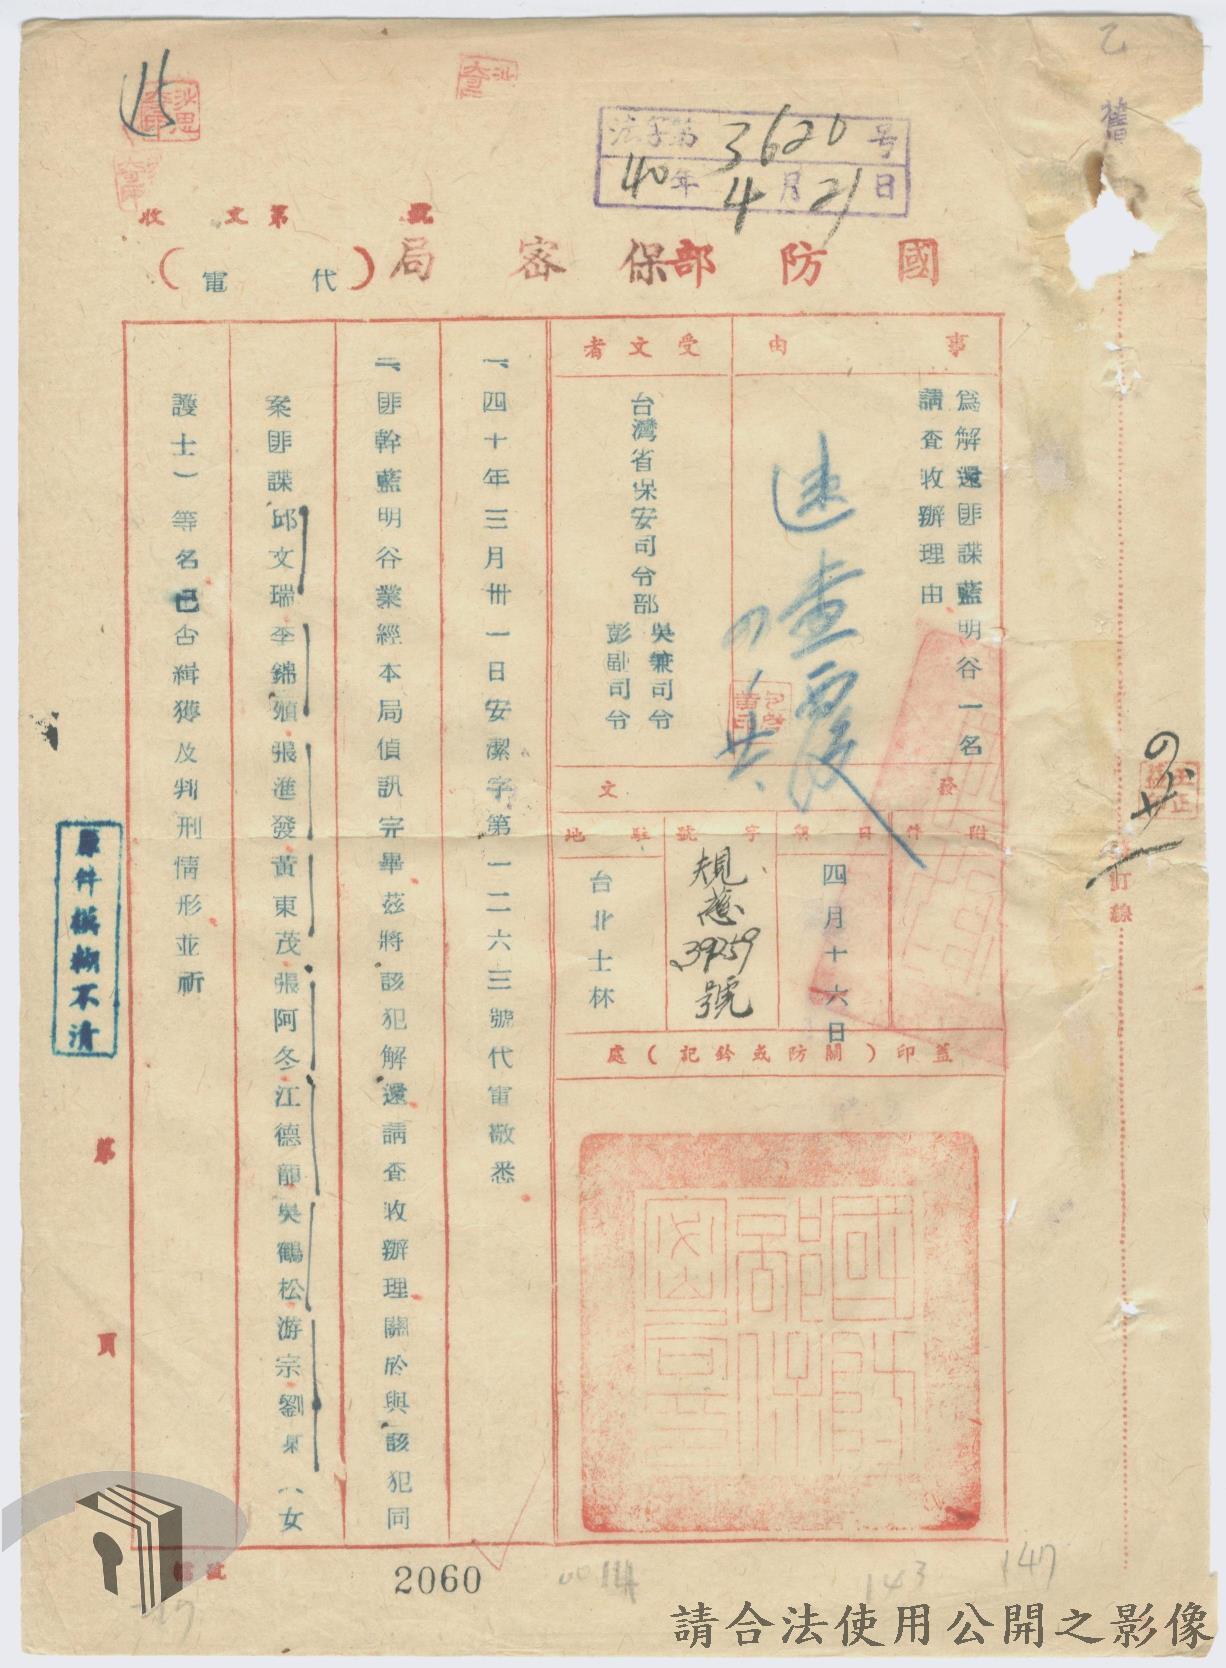 乙
舊
法字第3620号
40年4月21日
收文第 號
國防部保密局(代電)
事由
為解還匪諜藍明谷一名
請查收辦理由
速查覆
受文者
台灣省保安司令部
吳兼司令
彭副司令
發文
附件
日期
四月十六日
字號
規應39259號
駐地
台北士林
蓋印(關防或鈐記)處
國防部保密局
一、四十年三月卅一日安潔字第一二六三號代電敬悉
二、匪幹藍明谷業經本局偵訊完畢茲將該犯解還請查收辦理關於與該犯同
案匪諜邱文瑞李錦 張進發黃東茂張阿冬江德龍吳鶴松游宗劉 (女
護士)等名已否緝獲及判刑情形並祈
原件模糊不清
訂線
第 頁
2060
143
147
請合法使用公開之影像